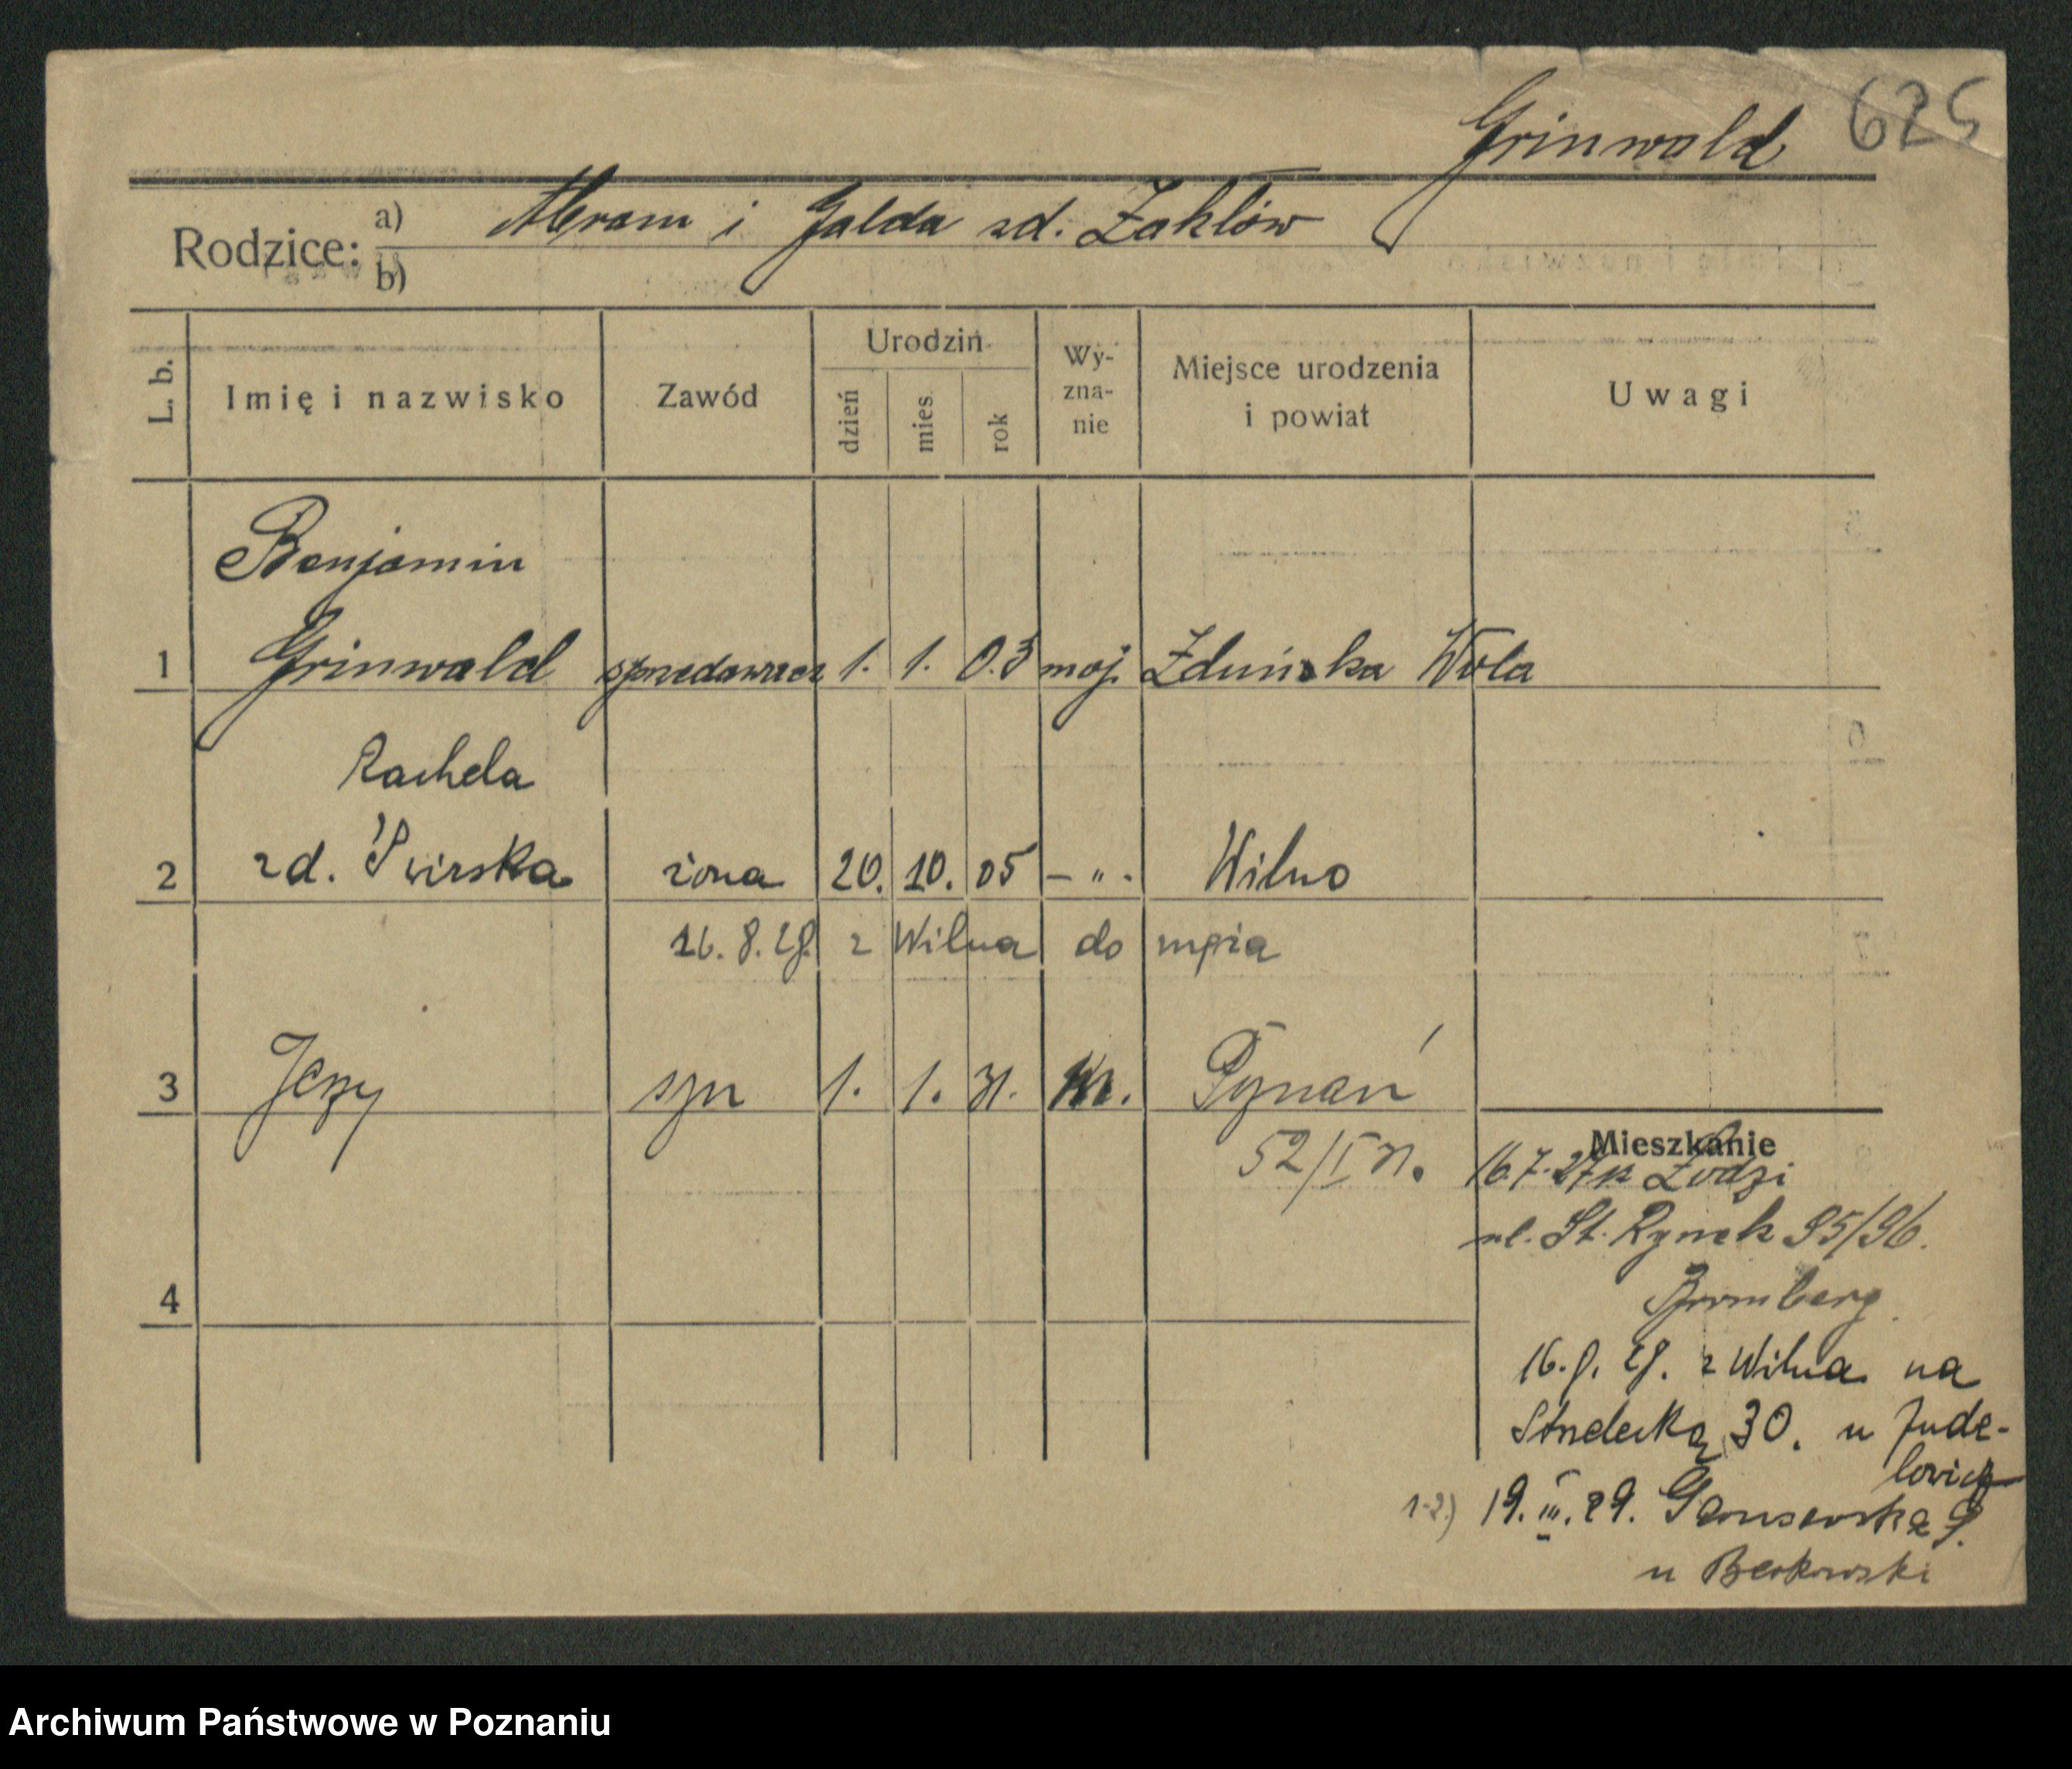 Grinwald 625
Rodzice: a) Abram i Galda zd. Żakłów
b)
L. b. Imię i nazwisko Zawód Urodzin dzień mies. rok Wy-zna-nie Miejsce urodzenia i powiat Uwagi
Benjamin
1 Grinwald sprzedawacz 1. 1. 03 moj. Zduńska Wola
Rachela
2 zd. Świrska żona 20. 10. 05 – „ - Wilno
16. 8. 28. z Wilna do męża
3 Jerzy syn 1. 1. 31. Poznań
52/I 31.
Mieszkanie
16.7.27 z Łodzi
ul. St. Rynek 95/96.
4
Bromberg
16. 8. 28. z Wilna na
Strzelecką 30. u Jude-
lowicz
1-2.) 19. III. 29. 9.
u Berkowski
Archiwum Państwowe w Poznaniu